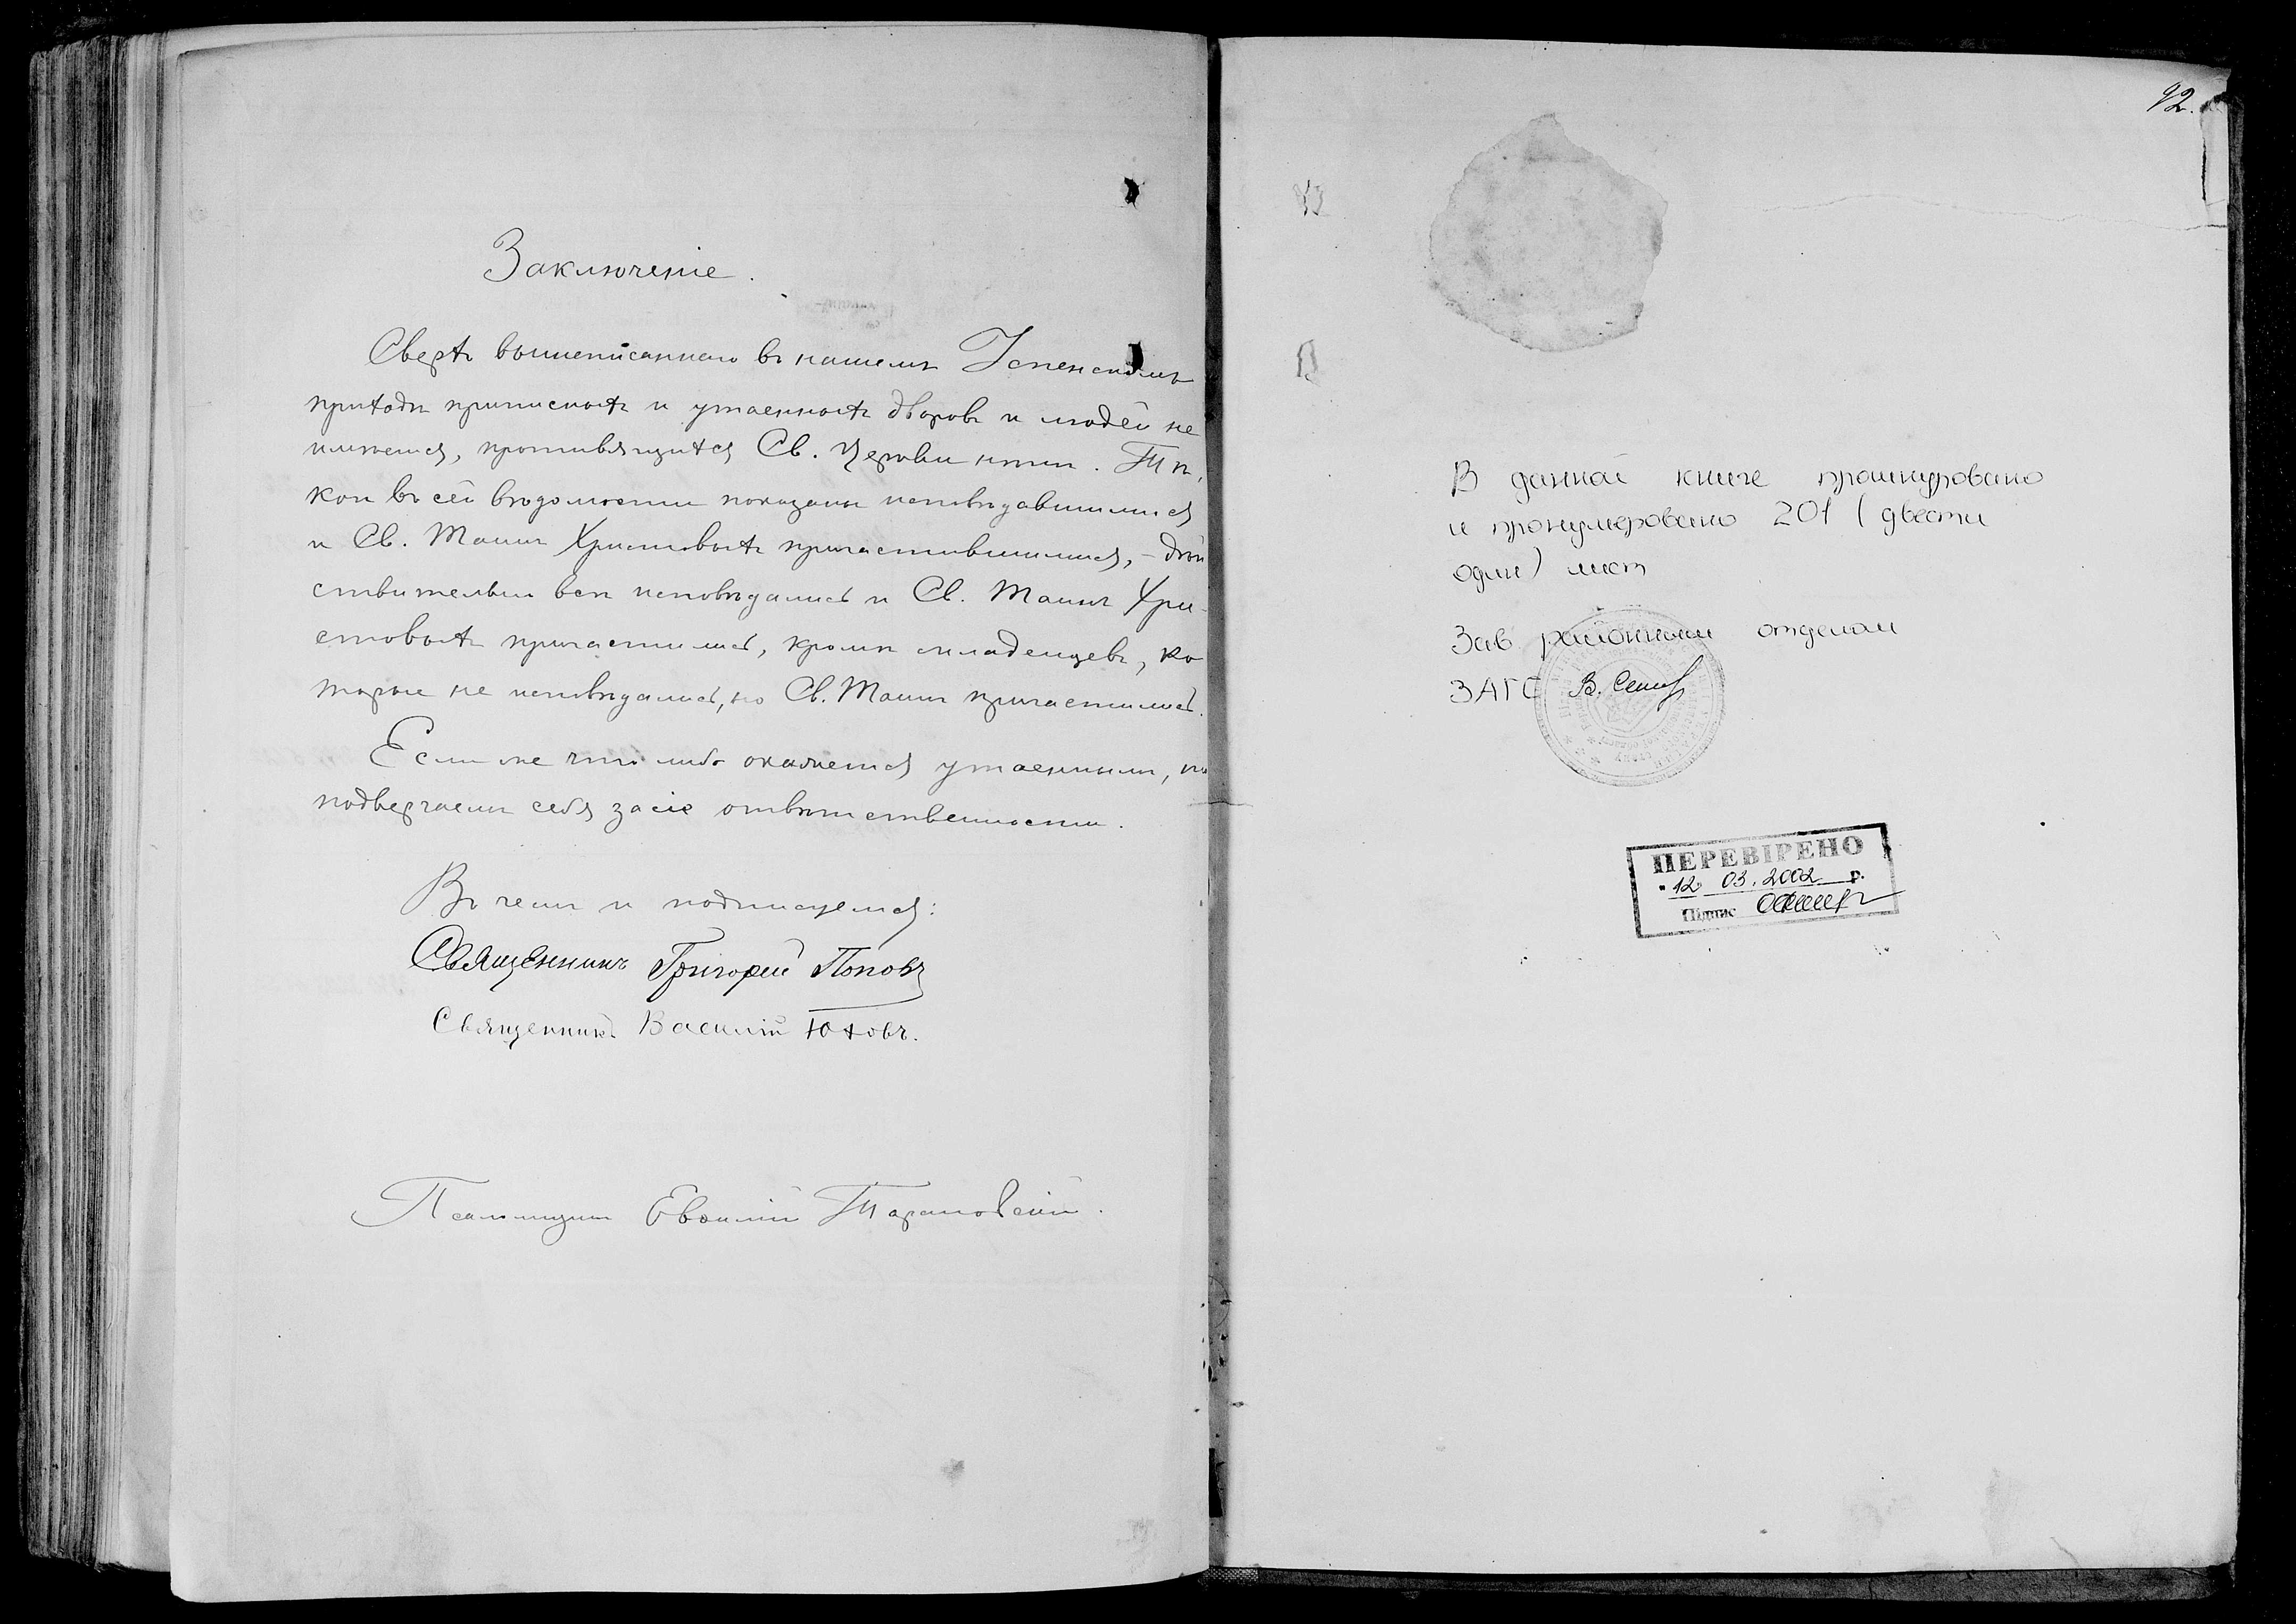 Заключеніе.
Сверхъ вышеписаннаго въ нашемъ Успенскомъ
приходѣ прописныхъ и утаенныхъ дворовъ и людей не
имѣется, противящихся Св. Церкви нѣтъ. Тѣ,
кои въ сей вѣдомости показаны исповѣдавшимися
и Св. Таинъ Христовыхъ причастившимися, – дѣй
ствительно всѣ исповѣдались и Св. Таинъ Хри-
стовыхъ причастились, кромѣ младенцевъ, ко
торые не исповѣдались, но Св. Таинъ причастились.
Если же что либо окажется утаеннымъ, то
подвергаемъ себя за сіе отвѣтственности.
Въ чемъ и подписуемся:
Священникъ Григорій Поповъ
Священникъ Василій Юховъ.
Псаломщикъ Евфимій Тарановскій.
92.
В данной книге прошнуровано
и пронумеровано 201 (двести
один) лист
Зав районным отделом
ЗАГС
ПЕРЕВІРЕНО
"12" 03. 2002 р.
Підпис